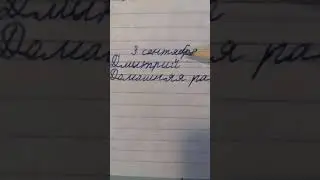 3 сентября
Дмитрий
Домашняя ра